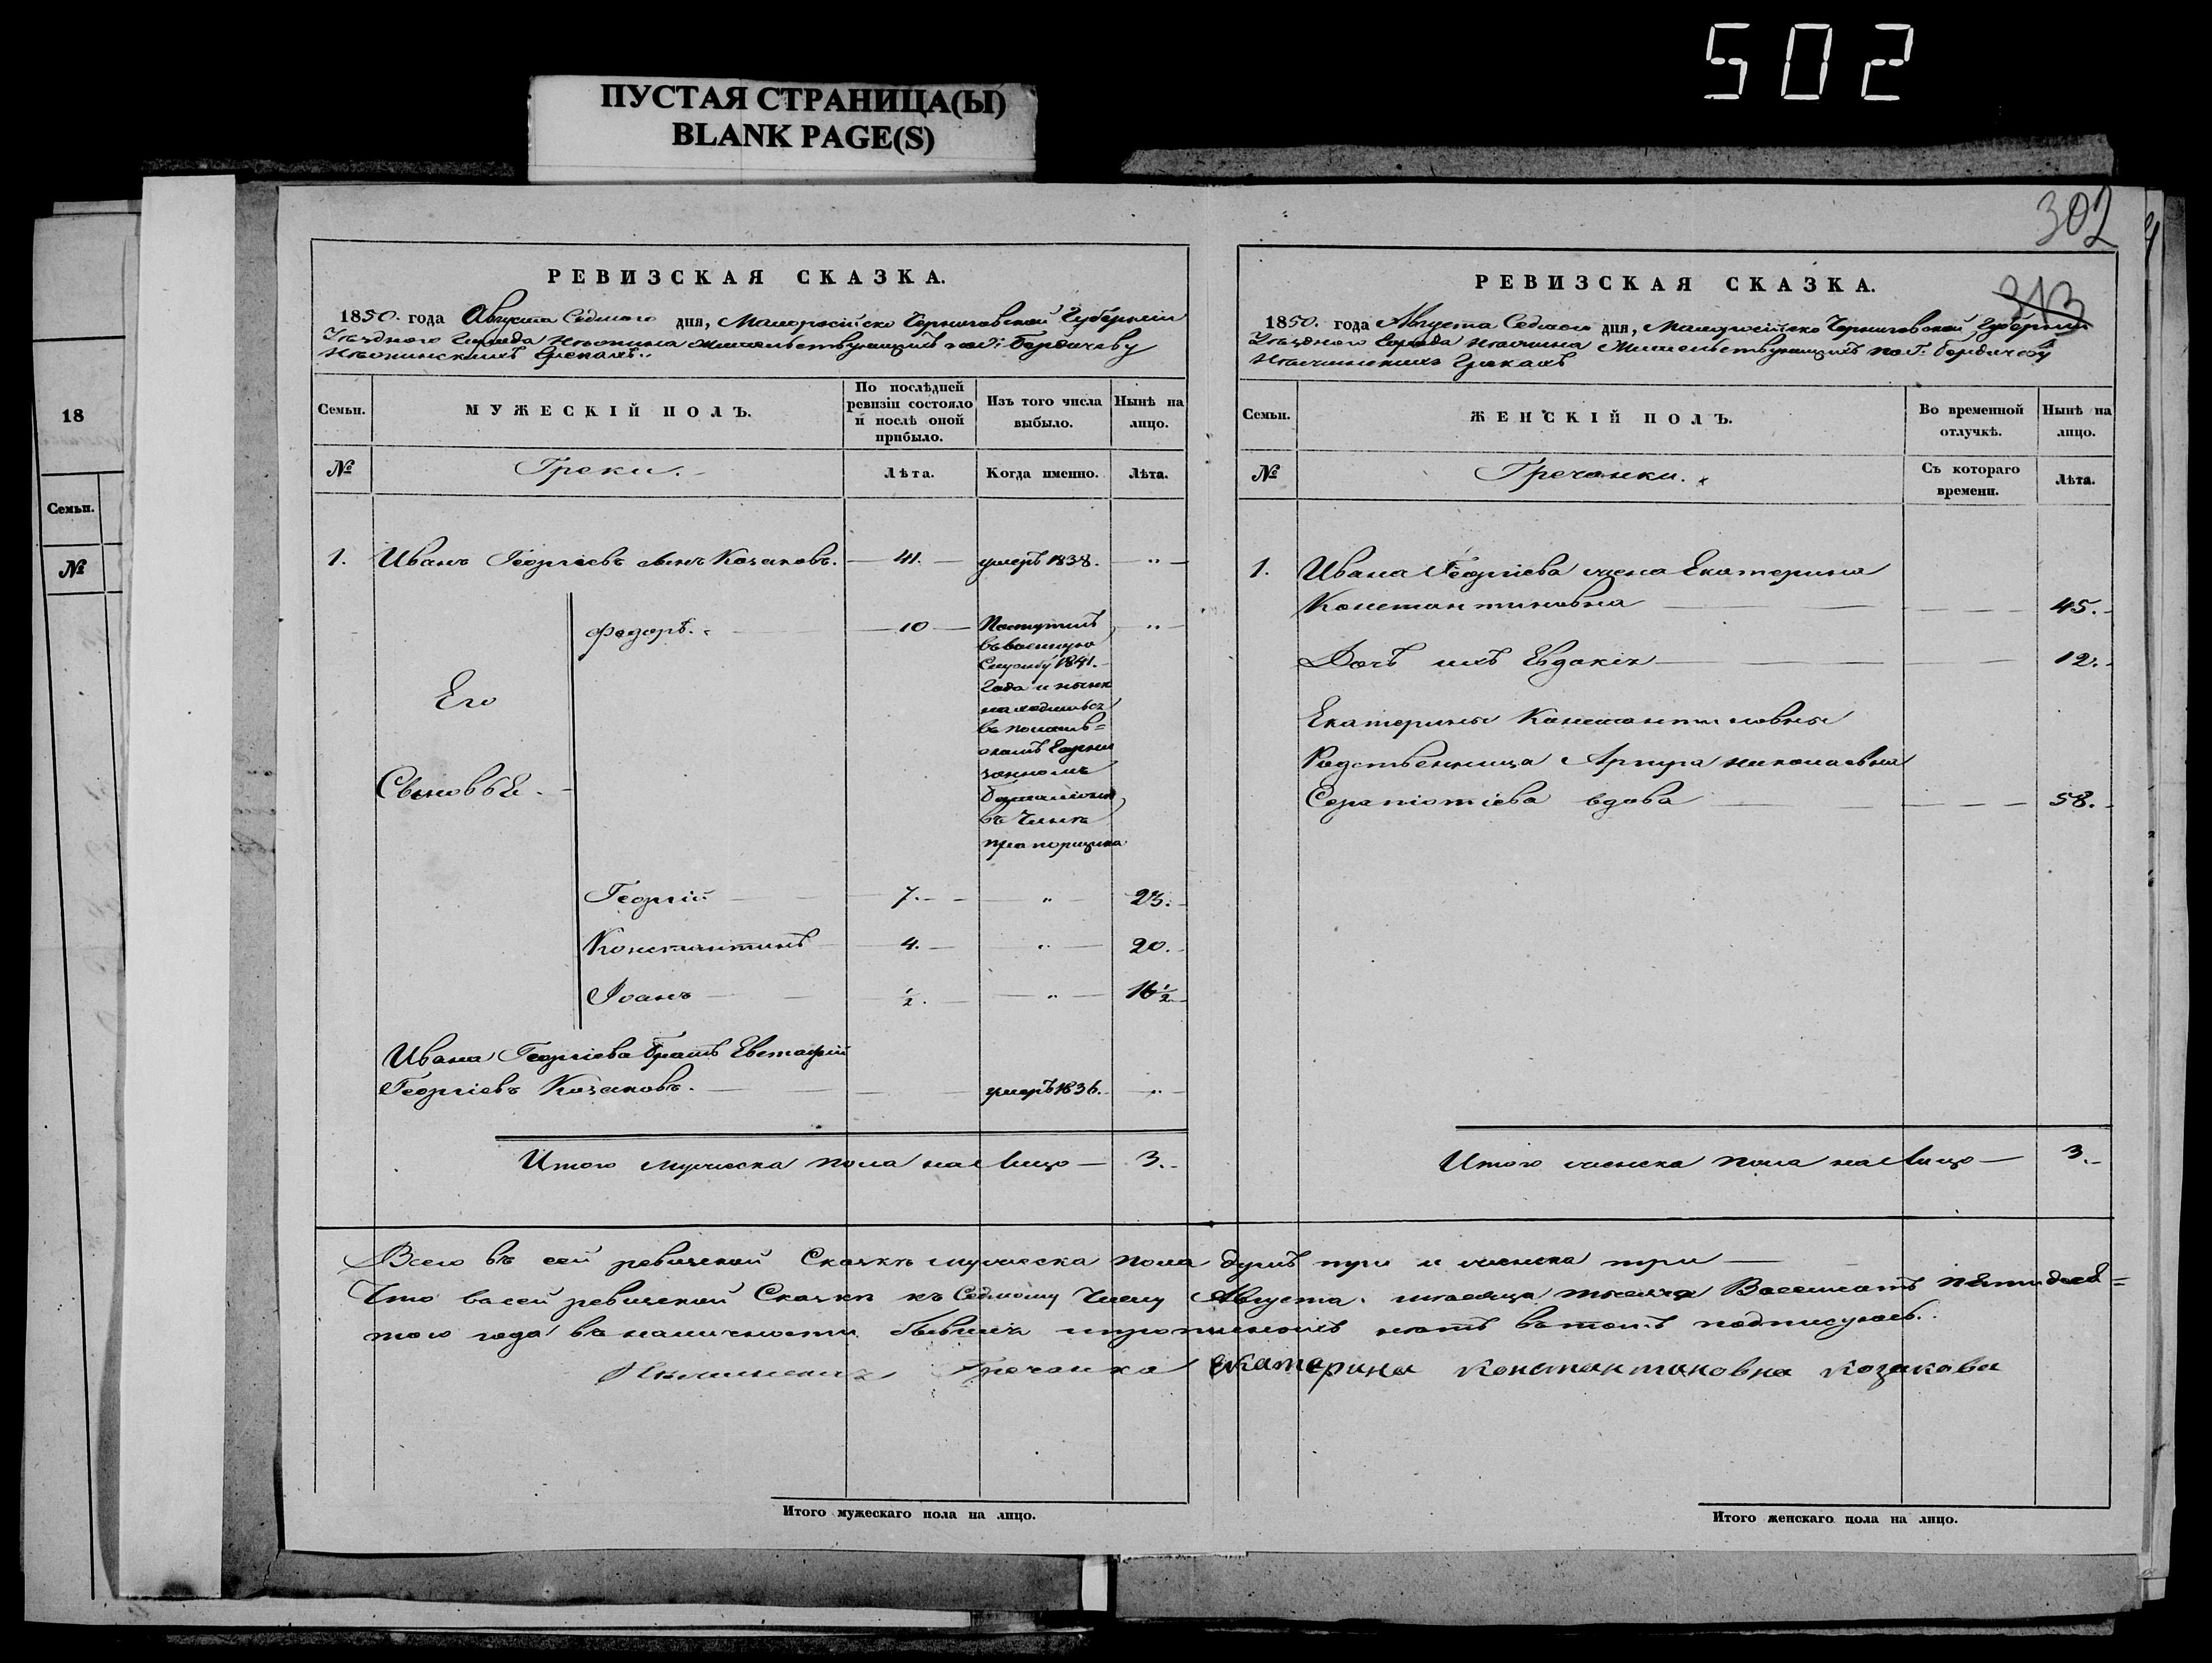 502
ПУСТАЯ СТРАНИЦА(Ы)
BLANK PAGE(S)
302
313
18
Семьи.
№
РЕВИЗСКАЯ СКАЗКА.
1850. года Августа Седмого дня, Малоросійско Черниговской Губерніи
Уѣздного Города Нѣжина жительствующихъ по г: Бердичеву
Нѣжинскихъ Грекахъ.
Семьи.
МУЖЕСКІЙ ПОЛЪ.
По послѣдней ревизіи состояло и послѣ оной прибыло.
Изъ того числа выбыло.
Нынѣ на лицо.
№
Греки.
Лѣта.
Когда именно.
Лѣта.
1. Иванъ Георгіевъ сынъ Козаковъ. 41. умеръ 1838. "
Его
Сыновья
Федоръ. 10 Поступилъ "
въ военную
Службу 1841.
Года и нынѣ
находиться
въ
Гарни
зонномъ
баталіонѣ,
въ Чинѣ
прапорщика
Георгій 7. " 23.
Константинъ 4. " 20.
Іоанъ ½. " 16½
Ивана Георгіева братъ Евстафій
Георгіевъ Козаковъ. умеръ 1836. "
Итого мужеска пола на Лицо 3.
РЕВИЗСКАЯ СКАЗКА.
1850. года Августа Седмого дня, Малоросійско Черниговской Губерніи
Уѣздного Города Нѣжина Жительствующихъ по Г. Бердичеву
Нѣжинскихъ Грекахъ
Семьи.
ЖЕНСКІЙ ПОЛЪ.
Во временной отлучкѣ.
Нынѣ на лицо.
№
Гречанки.
Съ котораго времени.
Лѣта.
1. Ивана Георгіева жена Екатерина
Константиновна 45.
Дочь ихъ Евдокія 12.
Екатерины Константиновны
Родственница Аргира Николаевна
вдова 58.
Итого женска пола на Лицо 3.
Всего въ сей ревизской Сказкѣ мужеска пола душъ три и женска три
Что въ сей ревизской Сказкѣ къ Седмому Числу Августа мѣсяца тысяча Восемсотъ пятидеся=
того года въ наличности бывших и прописныхъ нѣтъ въ томъ подписуюсь.
Нѣжинская Гречанка Екатерина Константиновна Козакова
Итого мужескаго пола на лицо.
Итого женскаго пола на лицо.